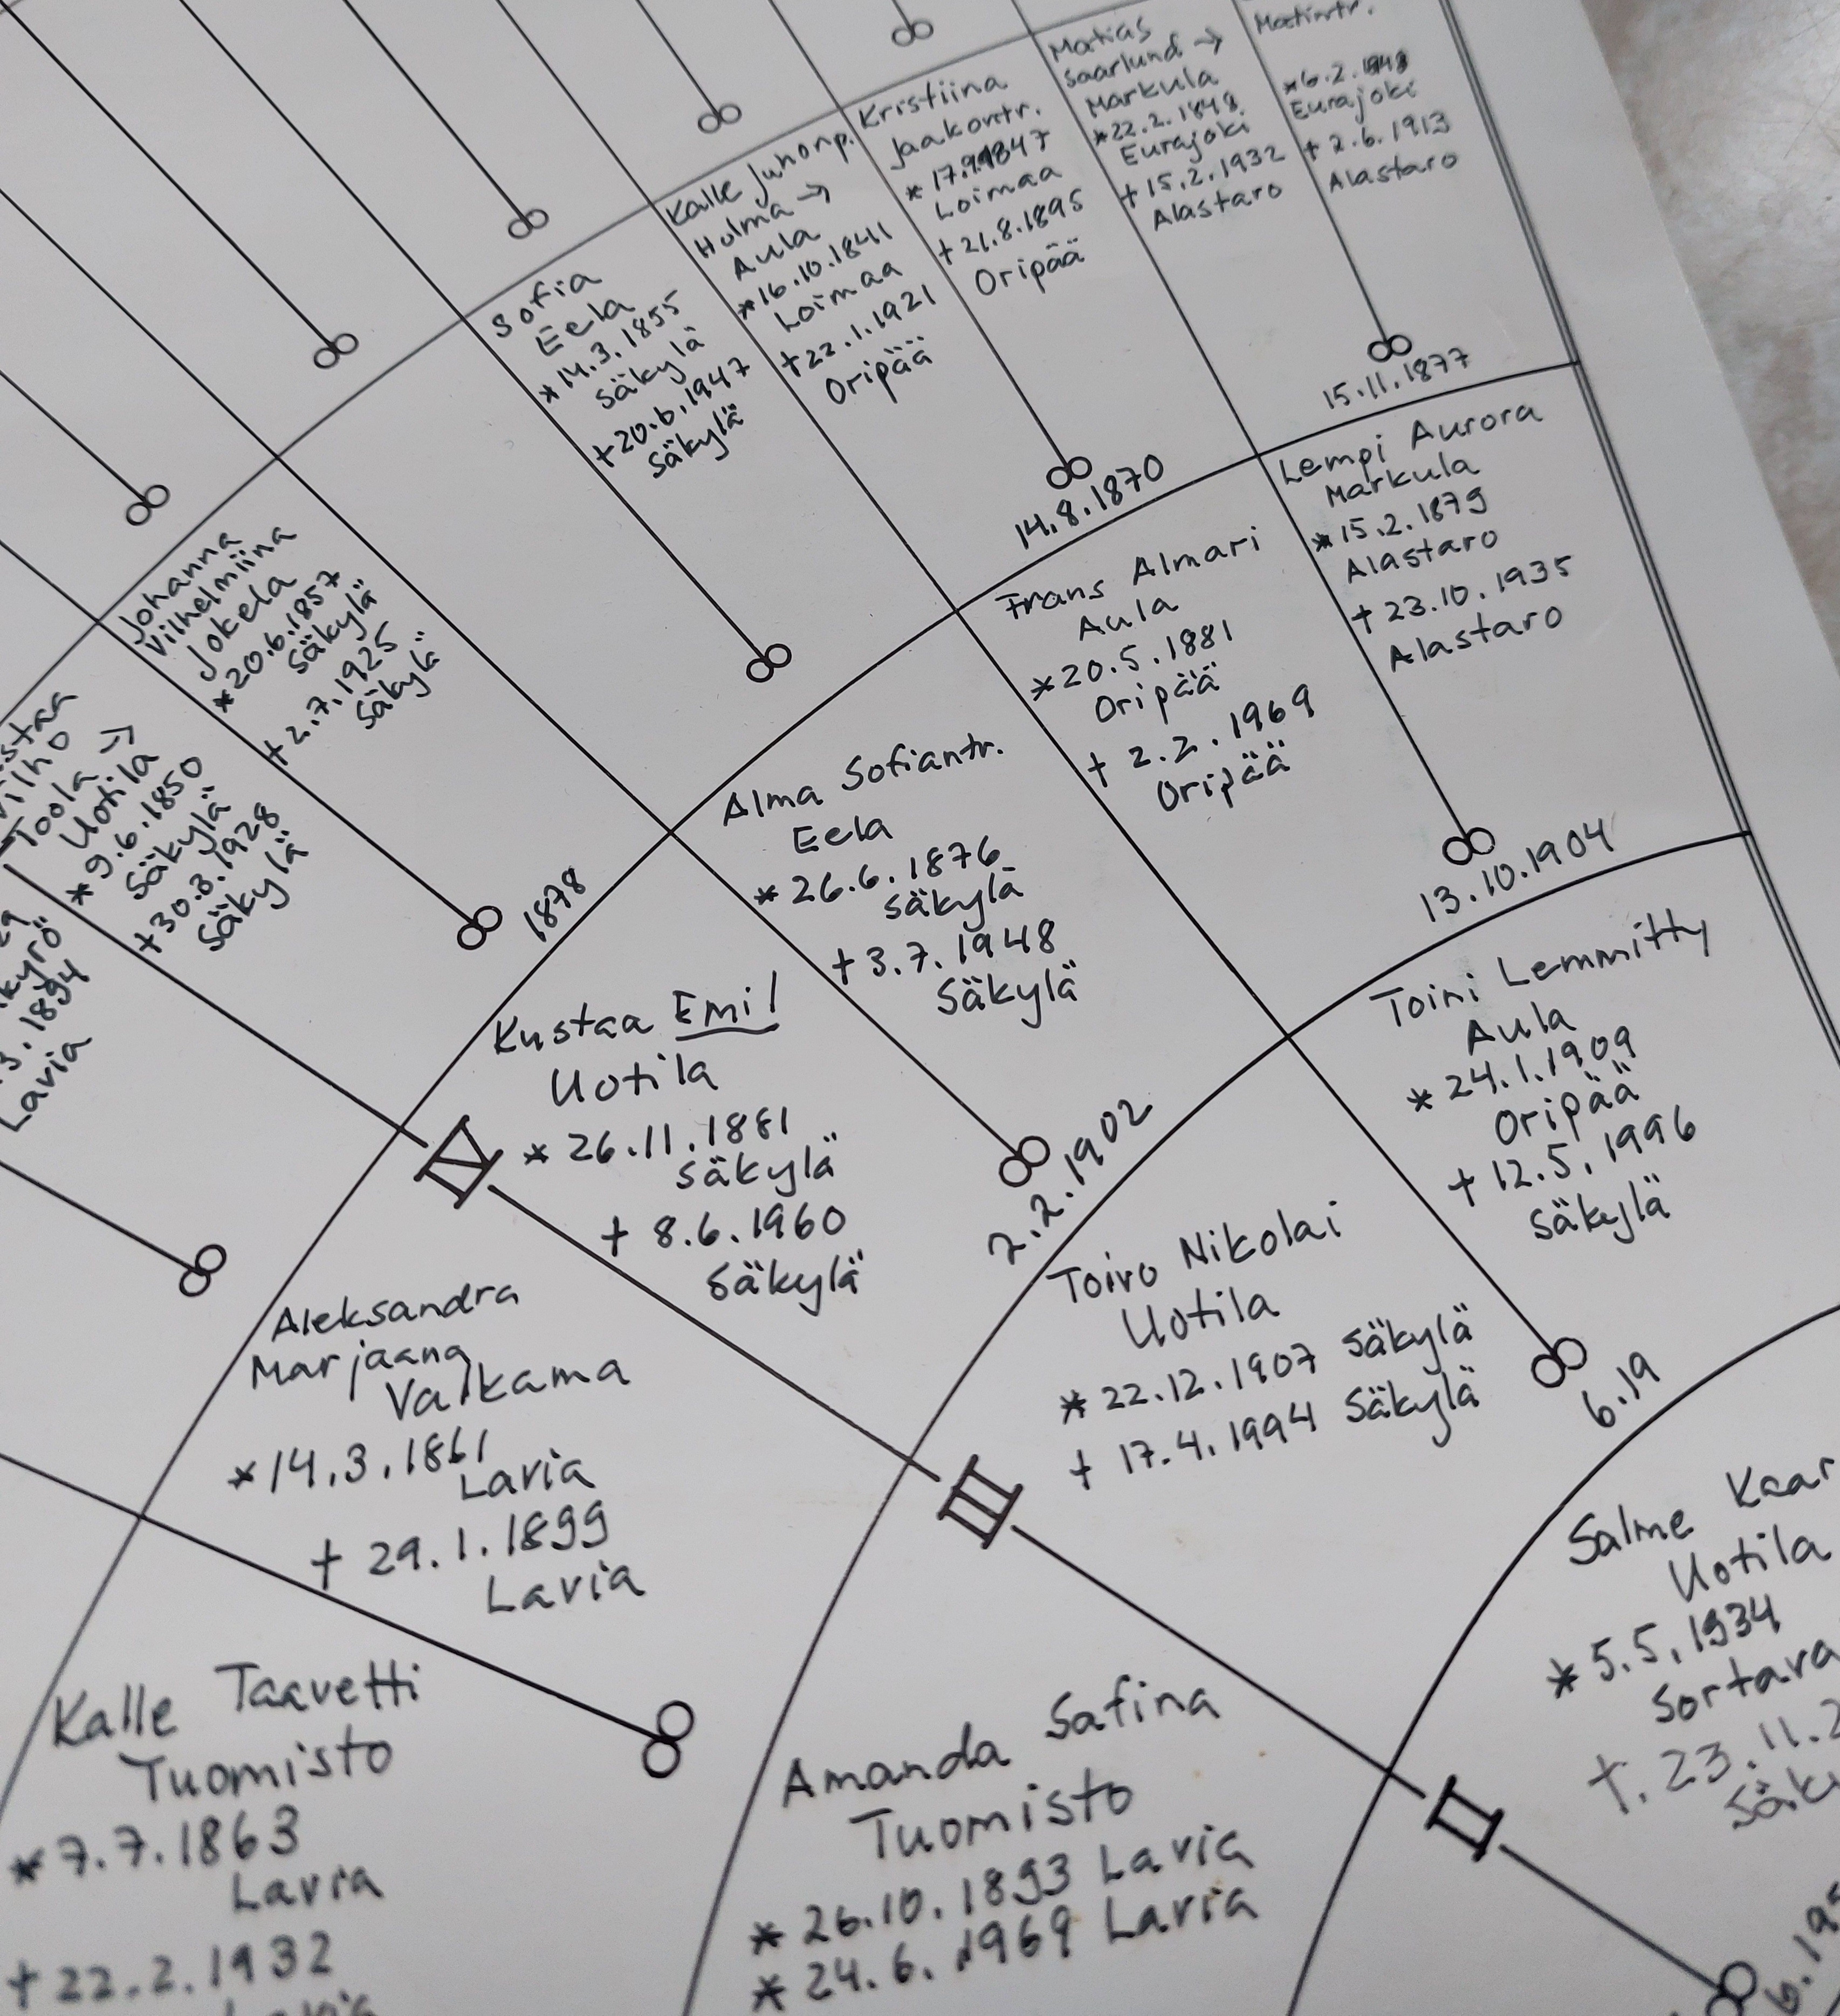 Matias
Saarlund →
Markula
*22.2.1848
Eurajoki
+15.2.1932
Alastaro
Matintr.
*6.2.
Eurajoki
+ 2.6.1913
Alastaro
15.11.1877
Kristiina
Jaakontr.
* 17.9.1847
Loimaa
+21.8.1895
Oripää
Kalle Juhonp.
Holma →
Aula
*16.10.1841
Loimaa
+22.1.1921
Oripää
14.8.1870
Sofia
Eela
*14.3.1855
Säkylä
+20.6.1947
Säkylä
Johanna
Vilhelmiina
Jokela
*20.6.1857
Säkylä
+2.7.1925
Säkylä
Toola →
Uotila
*9.6.1850
Säkylä
+30.3.1928
Säkylä
1878
1894
Lavia
Lempi Aurora
Markula
*15.2.1879
Alastaro
+ 23.10.1935
Alastaro
Frans Almari
Aula
*20.5.1881
Oripää
+ 2.2.1969
Oripää
13.10.1904
Alma Sofiantr.
Eela
* 26.6.1876
Säkylä
+3.7.1948
Säkylä
Kustaa Emil
Uotila
* 26.11.1881
Säkylä
+ 8.6.1960
Säkylä
2.2.1902
IV
Aleksandra
Marjaana
Valkama
*14.3.1861
Lavia
+ 29.1.1899
Lavia
Kalle Taavetti
Tuomisto
*7.7.1863
Lavia
+22.2.1932
Toini Lemmitty
Aula
* 24.1.1909
Oripää
+ 12.5.1996
Säkylä
Toivo Nikolai
Uotila
* 22.12.1907 Säkylä
+ 17.4.1994 Säkylä
6.19
III
Amanda Safina
Tuomisto
* 26.10.1893 Lavia
* 24.6.1969 Lavia
Salme Kaar
Uotila
* 5.5.1934
Sortava
+. 23.11.2
Säky
II
6.19